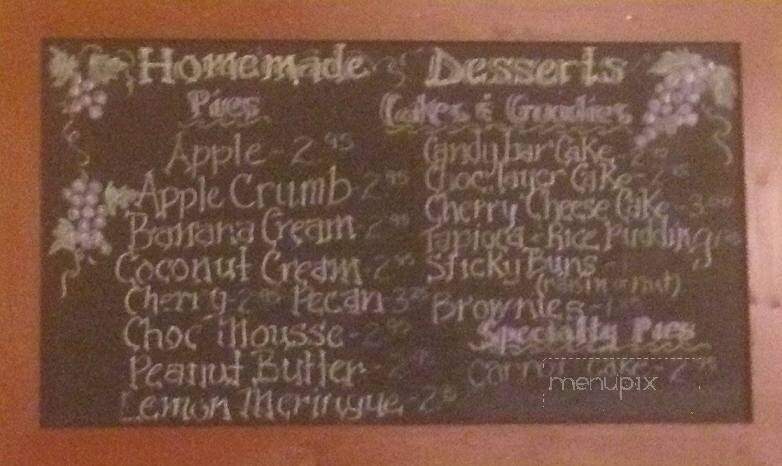 Homemade Desserts
Pies
Apple - 2.95
Apple Crumb - 2.95
Banana Cream - 2.95
Coconut Cream - 2.95
Cherry - 2.95 Pecan 3.
Choc Mousse - 2.95
Peanut Butter - 2.95
Lemon Meringue - 2.
Cakes & Goodies
Candy bar Cake
Choc. layer Cake -
Cherry Cheese Cake - 3.
Tapioca - Rice Pudding
Sticky Buns -
(raisin or nut)
Brownies -
Specialty Pies
Carrot Cake - 2.95
menupix